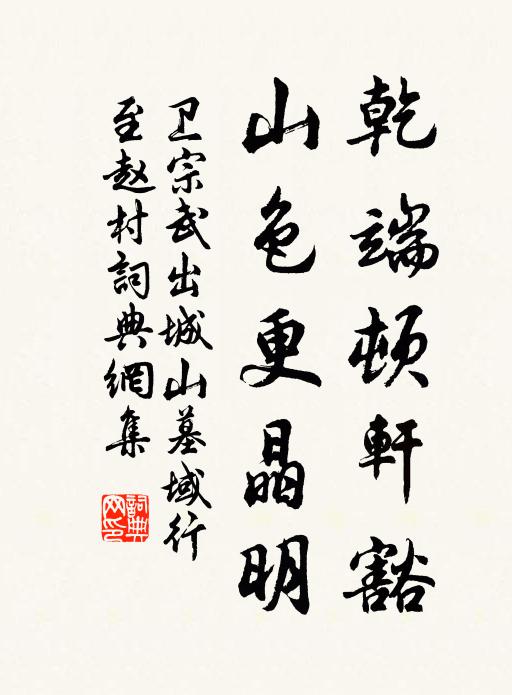 乾端頓軒豁
山色更晶明
卫宗武出城山墓域行
至赵村詞典網集
詞典
网印